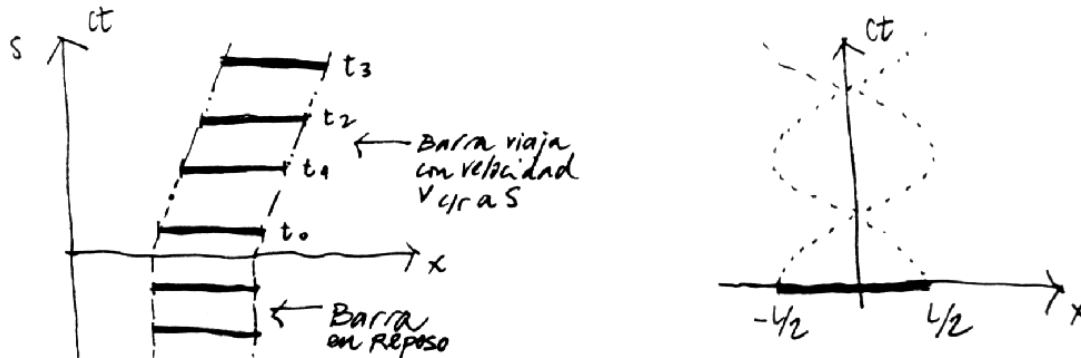 S
ct
t3
t2
t1
t0
x
Barra viaja
con velocidad
V c/r a S
Barra
en reposo
ct
-L/2
L/2
x